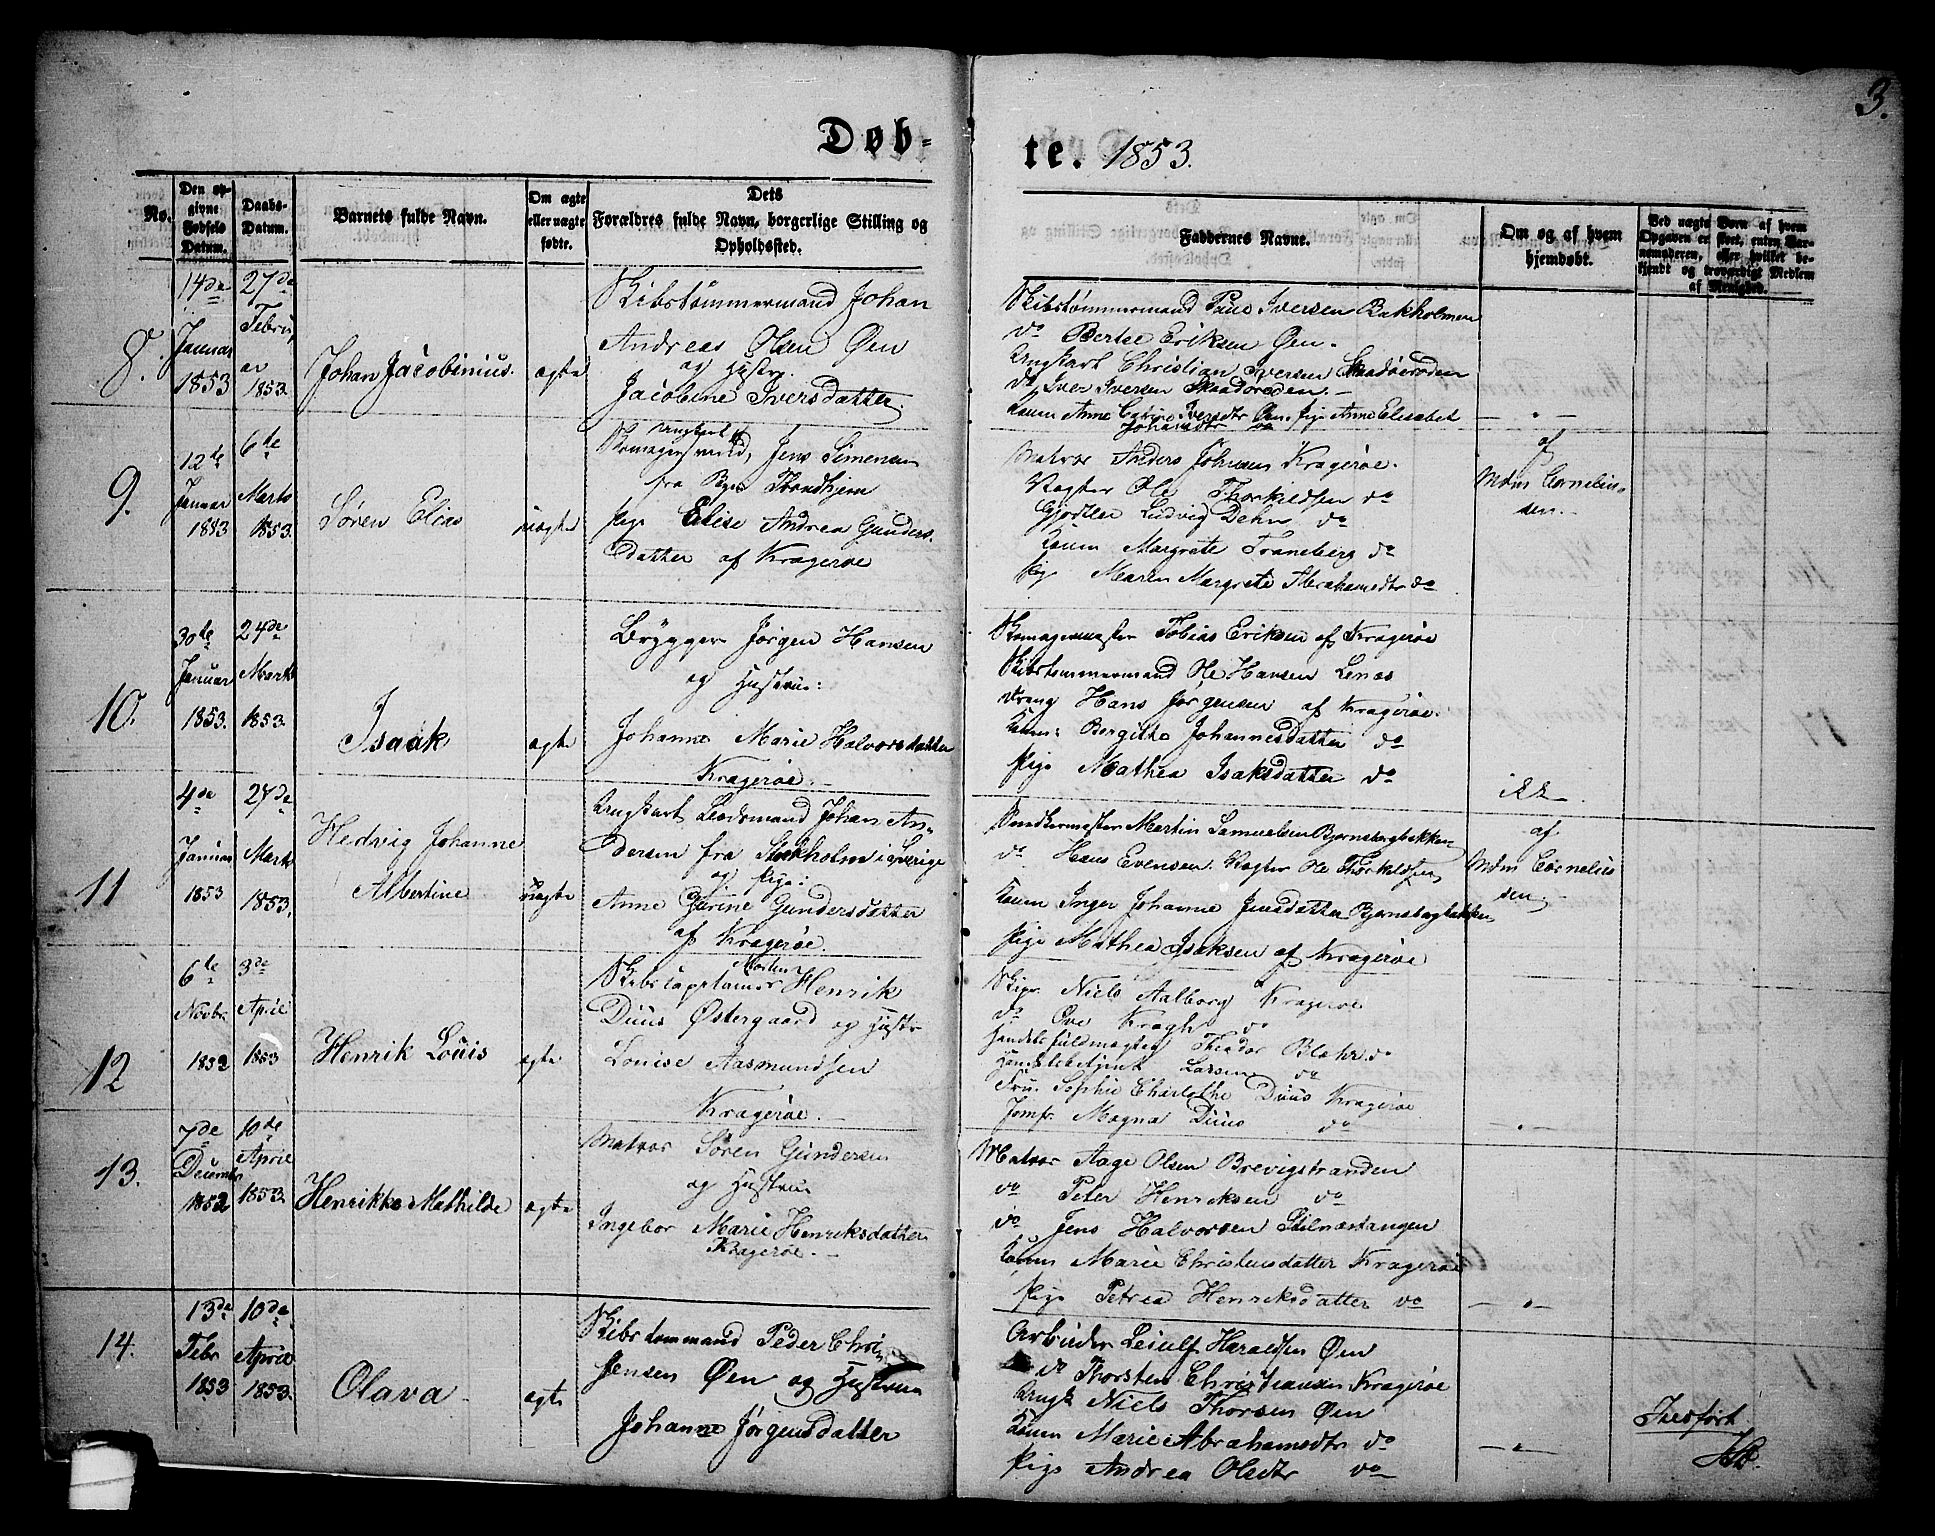 3.
Døb-
te. 1853.
No.
Den op-
givne
Fødsels
Datum.
Daabs-
Datum.
Barnets fulde Navn.
Om ægte
eller uægte
fødte.
Dets
Forældres fulde Navn, borgerlige Stilling og
Opholdssted.
Faddernes Navne.
Om og af hvem
hjemdøbt.
Ved uægte Børn af hvem
Opgaven er skeet, enten Bar-
nemoderen, eller hvilket be-
kjendt og troværdigt Medlem
af Menighed.
8.
14de
Januar
1853
27de
Febru
ar
1853.
Johan Jacobinius.
ægte
Skibstømmermand Johan
Andreas Olsen Øen
og Hustr.
Jacobine Iversdatter
Skibstømmermand Iversen
do Eriksen Øen.
Ungkarl Christian Iversen
do Iver Iversen
Konen Anne Iversdtr Øen, Pige Anne Elisabet
Johansdtr do
— " —
9.
12te
Januar
1853
6te
Marts
1853.
Søren Elias
uægte
Ungkarl
Skomagersvend, Jens Simensen
fra Byen Trondhjem
Pige Elise Andrea Gunders-
datter af Kragerøe
Matros Anders Johnsen Kragerøe.
Vægter Ole Thorkildsen do
Gjørtler Ludvig Dehn do
Konen Margrete Traneberg do
Pige Maren Margrete Abrahamsdtr do
af
Mdm Cornelius-
sen.
10.
30te
Januar
1853.
24de
Marts
1853.
Isaak
ægte
Brygger Jørgen Hansen
og Hustrue:
Johanne Marie Halvorsdatter
Kragerøe.
Skomagermester Tobias Eriksen af Kragerøe
Skibstømmermand Ole Hansen
Dreng Hans Jørgensen af Kragerøe.
Konen: Bergitte Johannesdatter do
Pige Mathea Isaksdatter do
ikke
11
4de
Januar
1853
27de
Marts
1853.
Hedvig Johanne
Albertine
uægte
Ungkarl Johan An-
dersen fra Stokholm i Sverige
og Pige:
Anne Gurine Gundersdatter
af Kragerøe.
Snedkermester Martin Samuelsen Bjørnsbergbakken
do Hans Evensen. Vægter Ole Thorkildsen
Konen Inger Johanne Jensdatter Bjørnsbergbakken
Pige Mathea Isaksen af Kragerøe
af
Mdm Cornelius
sen
12
6te
Novbr
1852
3de
April
1853
Henrik Louis
ægte
Morten
Skibscaptainer Henrik
Duus Østergaard og Hustr
Louise Aasmundsen
Kragerøe.
Skipr Niels Aalborg Kragerøe
do Ove Kragh do
Handelsfuldmægtig Theodor Blehr do
Larsen do
Fru. Sophie Charlothe Duus Kragerøe
Jomfr. Magna Duus do
— " —
13.
7de
Decembr
1852
10de
April
1853.
Henrikke Mathilde
ægte
Matros Søren Gundersen
og Hustrue
Ingebor Marie Henriksdatter
Kragerøe.
Matros Aage Olsen Brevigstranden
do Peter Henriksen do
do Jens Halvorsen Stilnæstangen
Konen Marie Christensdatter Kragerøe
Pige Petrea Henriksdatter do
— " —
14.
13de
Febr
1853
10de
April
1853.
Olava
ægte
Skibstømmand Peder Chris
Jensen Øen og Hustrue
Johanne Jørgensdatter
Arbeider Leiulf Haraldsen Øen
do Thorsten Christiansen Kragerøe
Ungk Niels Thorsen Øen
Konen Marie Abrahamsdtr do
Pige Andrea Olsdtr do
— " —